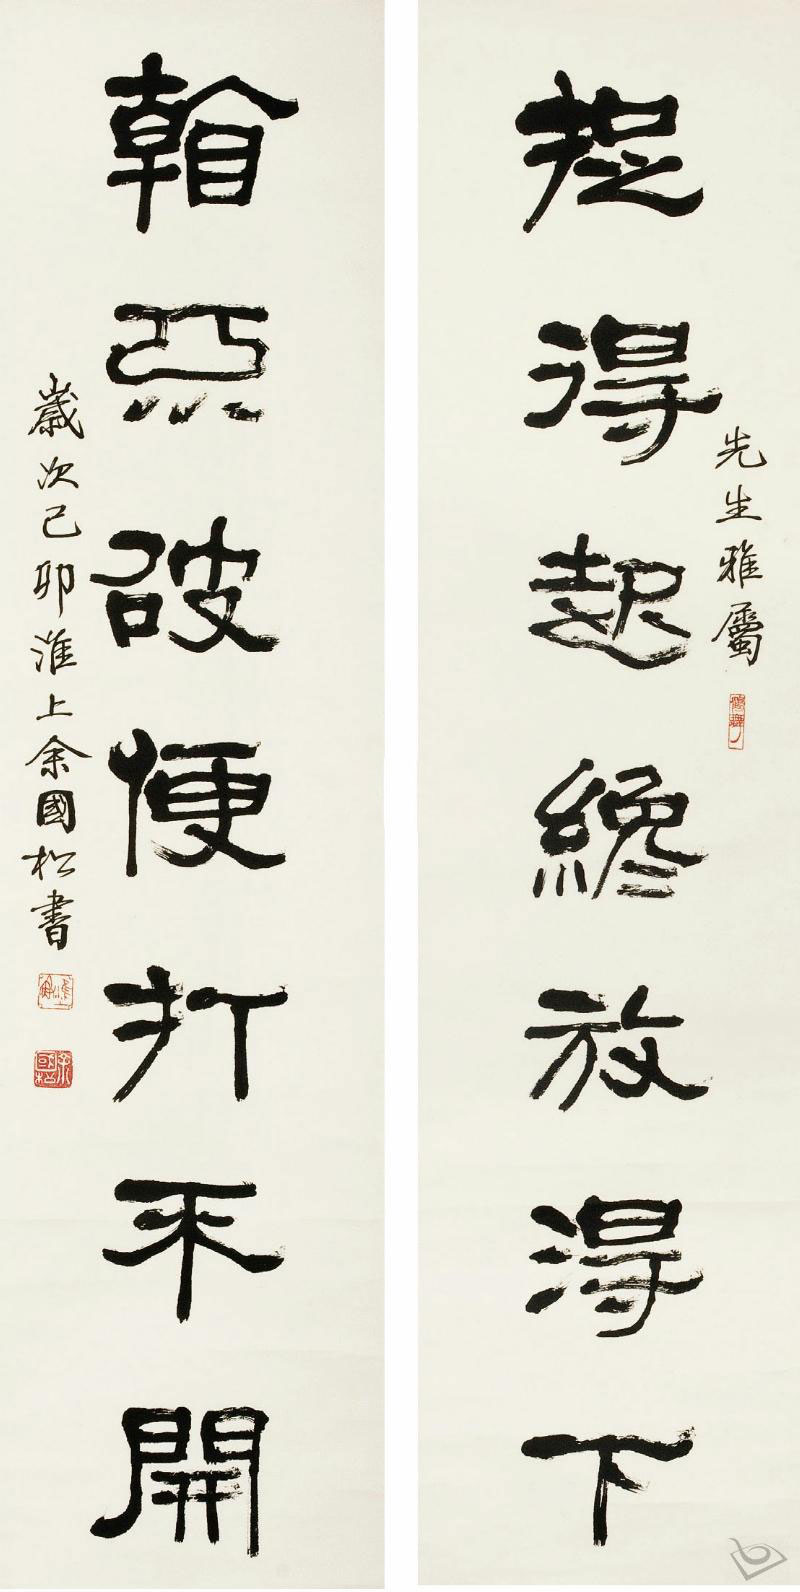 提得起纔放得下
先生雅屬
看不破便打不開
歲次己卯淮上余國松書
余國松